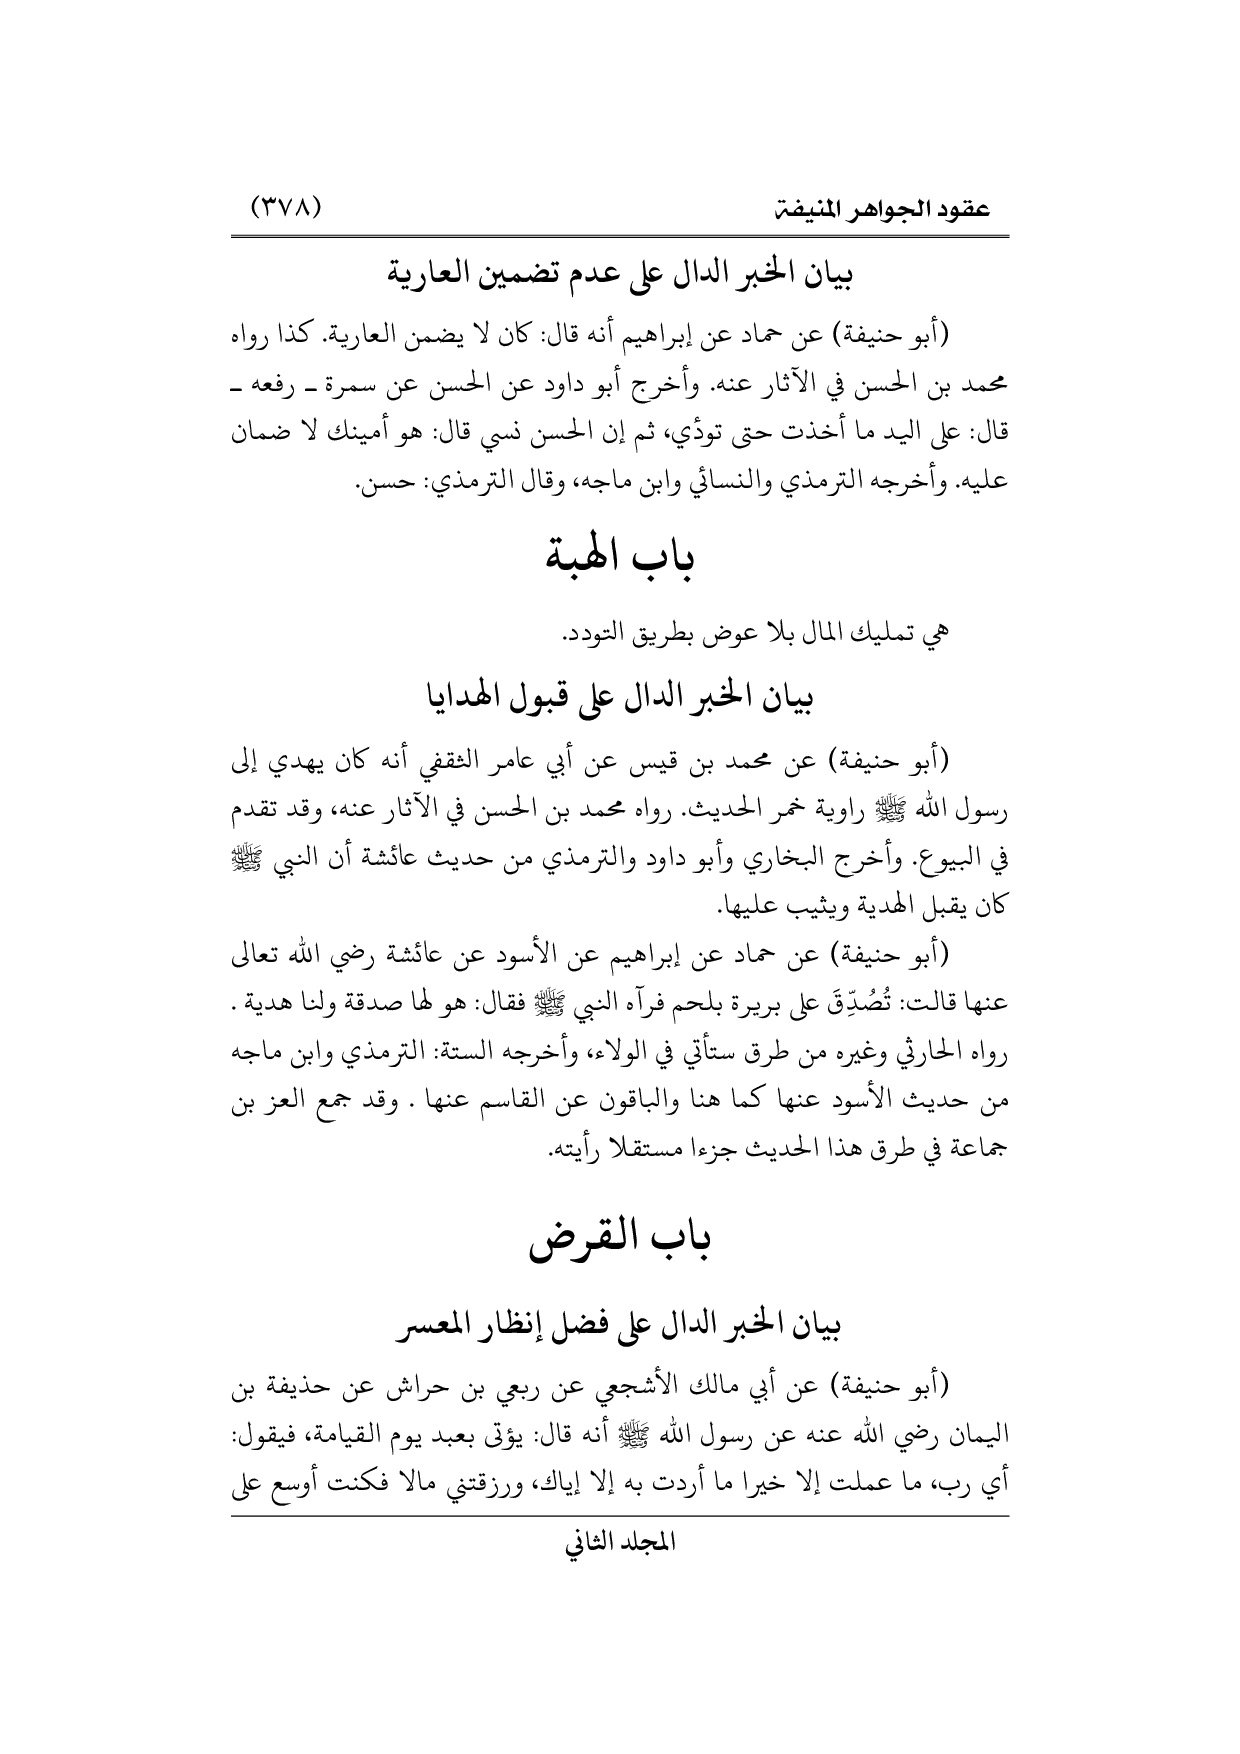 عقود الجواهر المنيفة (٣٧٨)
بيان الخبر الدال على عدم تضمين العارية
(أبو حنيفة) عن حماد عن إبراهيم أنه قال: كان لا يضمن العارية. كذا رواه
محمد بن الحسن في الآثار عنه. وأخرج أبو داود عن الحسن عن سمرة ـ رفعه ـ
قال: على اليد ما أخذت حتى تودُي، ثم إن الحسن نسي قال: هو أمينك لا ضمان
عليه. وأخرجه الترمذي والنسائي وابن ماجه، وقال الترمذي: حسن.
باب الهبة
هي تمليك المال بلا عوض بطريق التودد.
بيان الخبر الدال على قبول الهدايا
(أبو حنيفة) عن محمد بن قيس عن أبي عامر الثقفي أنه كان يهدي إلى
رسول الله ﷺ راوية خمر الحديث. رواه محمد بن الحسن في الآثار عنه، وقد تقدم
في البيوع. وأخرج البخاري وأبو داود والترمذي من حديث عائشة أن النبي ﷺ
كان يقبل الهدية ويثيب عليها.
(أبو حنيفة) عن حماد عن إبراهيم عن الأسود عن عائشة رضي الله تعالى
عنها قالت: تُصُدِّقَ على بريرة بلحم فرآه النبي ﷺ فقال: هو لها صدقة ولنا هدية .
رواه الحارثي وغيره من طرق ستأتي في الولاء، وأخرجه الستة: الترمذي وابن ماجه
من حديث الأسود عنها كما هنا والباقون عن القاسم عنها . وقد جمع العز بن
جماعة في طرق هذا الحديث جزءا مستقلا رأيته.
باب القرض
بيان الخبر الدال على فضل إنظار المعسر
(أبو حنيفة) عن أبي مالك الأشجعي عن ربعي بن حراش عن حذيفة بن
اليمان رضي الله عنه عن رسول الله ﷺ أنه قال: يؤتى بعبد يوم القيامة، فيقول:
أي رب، ما عملت إلا خيرا ما أردت به إلا إياك، ورزقتني مالا فكنت أوسع على
المجلد الثاني